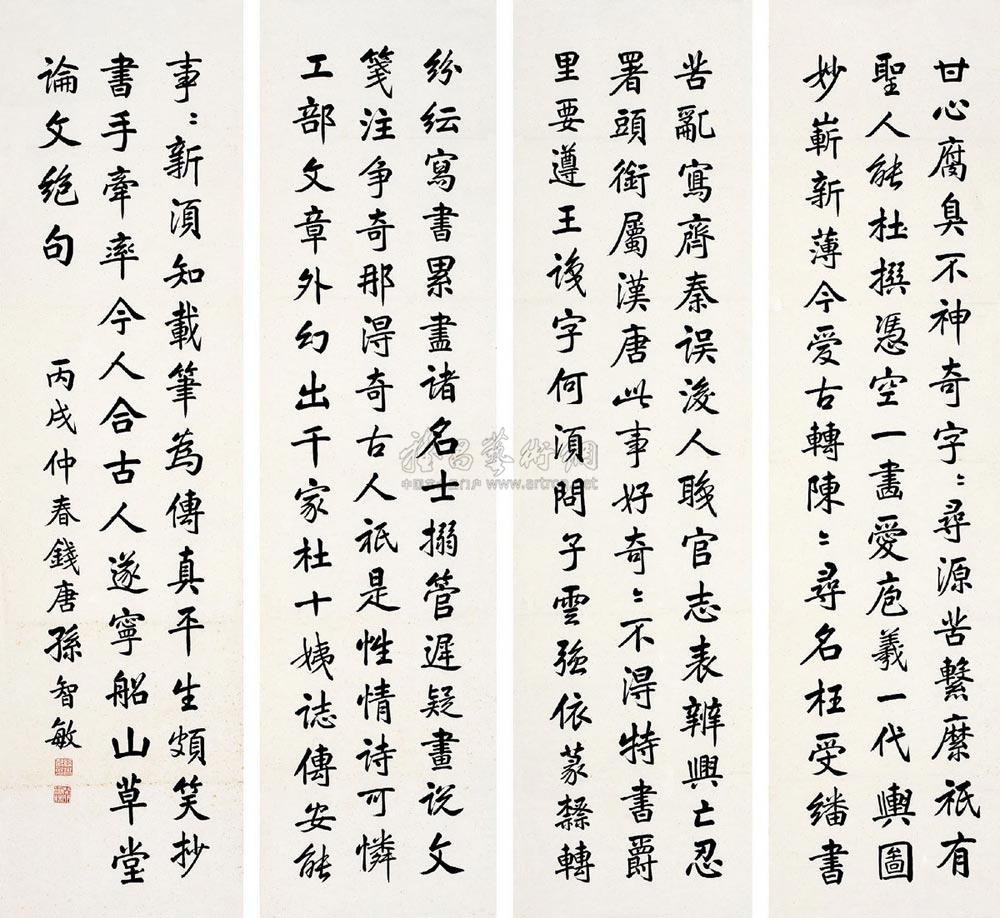 甘心腐臭不神奇字〻尋源苦繫縻祇有
聖人能杜撰憑空一畫愛庖羲一代輿圖
妙嶄新薄今愛古轉陳〻尋名枉受繙書
苦亂寫齊秦誤後人職官志表辨興亡忍
署頭銜屬漢唐此事好奇〻不得特書爵
里要遵王識字何須問子雲強依篆隸轉
紛紜寫書累畫諸名士搦管遲疑畫說文
箋注爭奇那得奇古人祇是性情詩可憐
工部文章外幻出千家杜十姨誌傳安能
事〻新須知載筆為傳真平生頗笑抄
書手牽率今人合古人遂寧船山草堂
論文絕句 丙戌仲春錢唐孫智敏
雅昌藝術網
www.artron.net